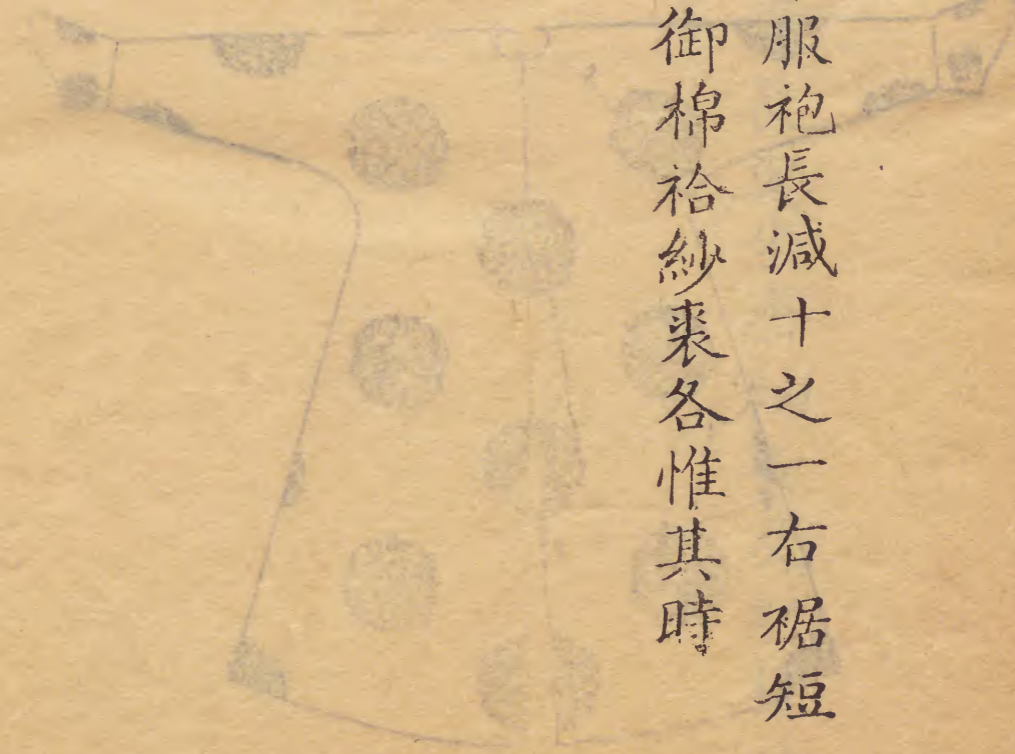 服袍長減十之一右裾短
御棉袷紗裘各惟其時